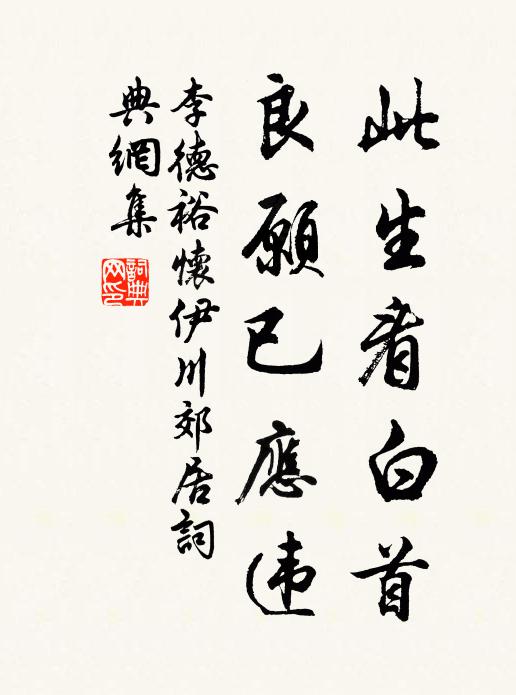 此生看白首
良願已應違
李德裕懷伊川郊居詞
典網集
詞典
网印